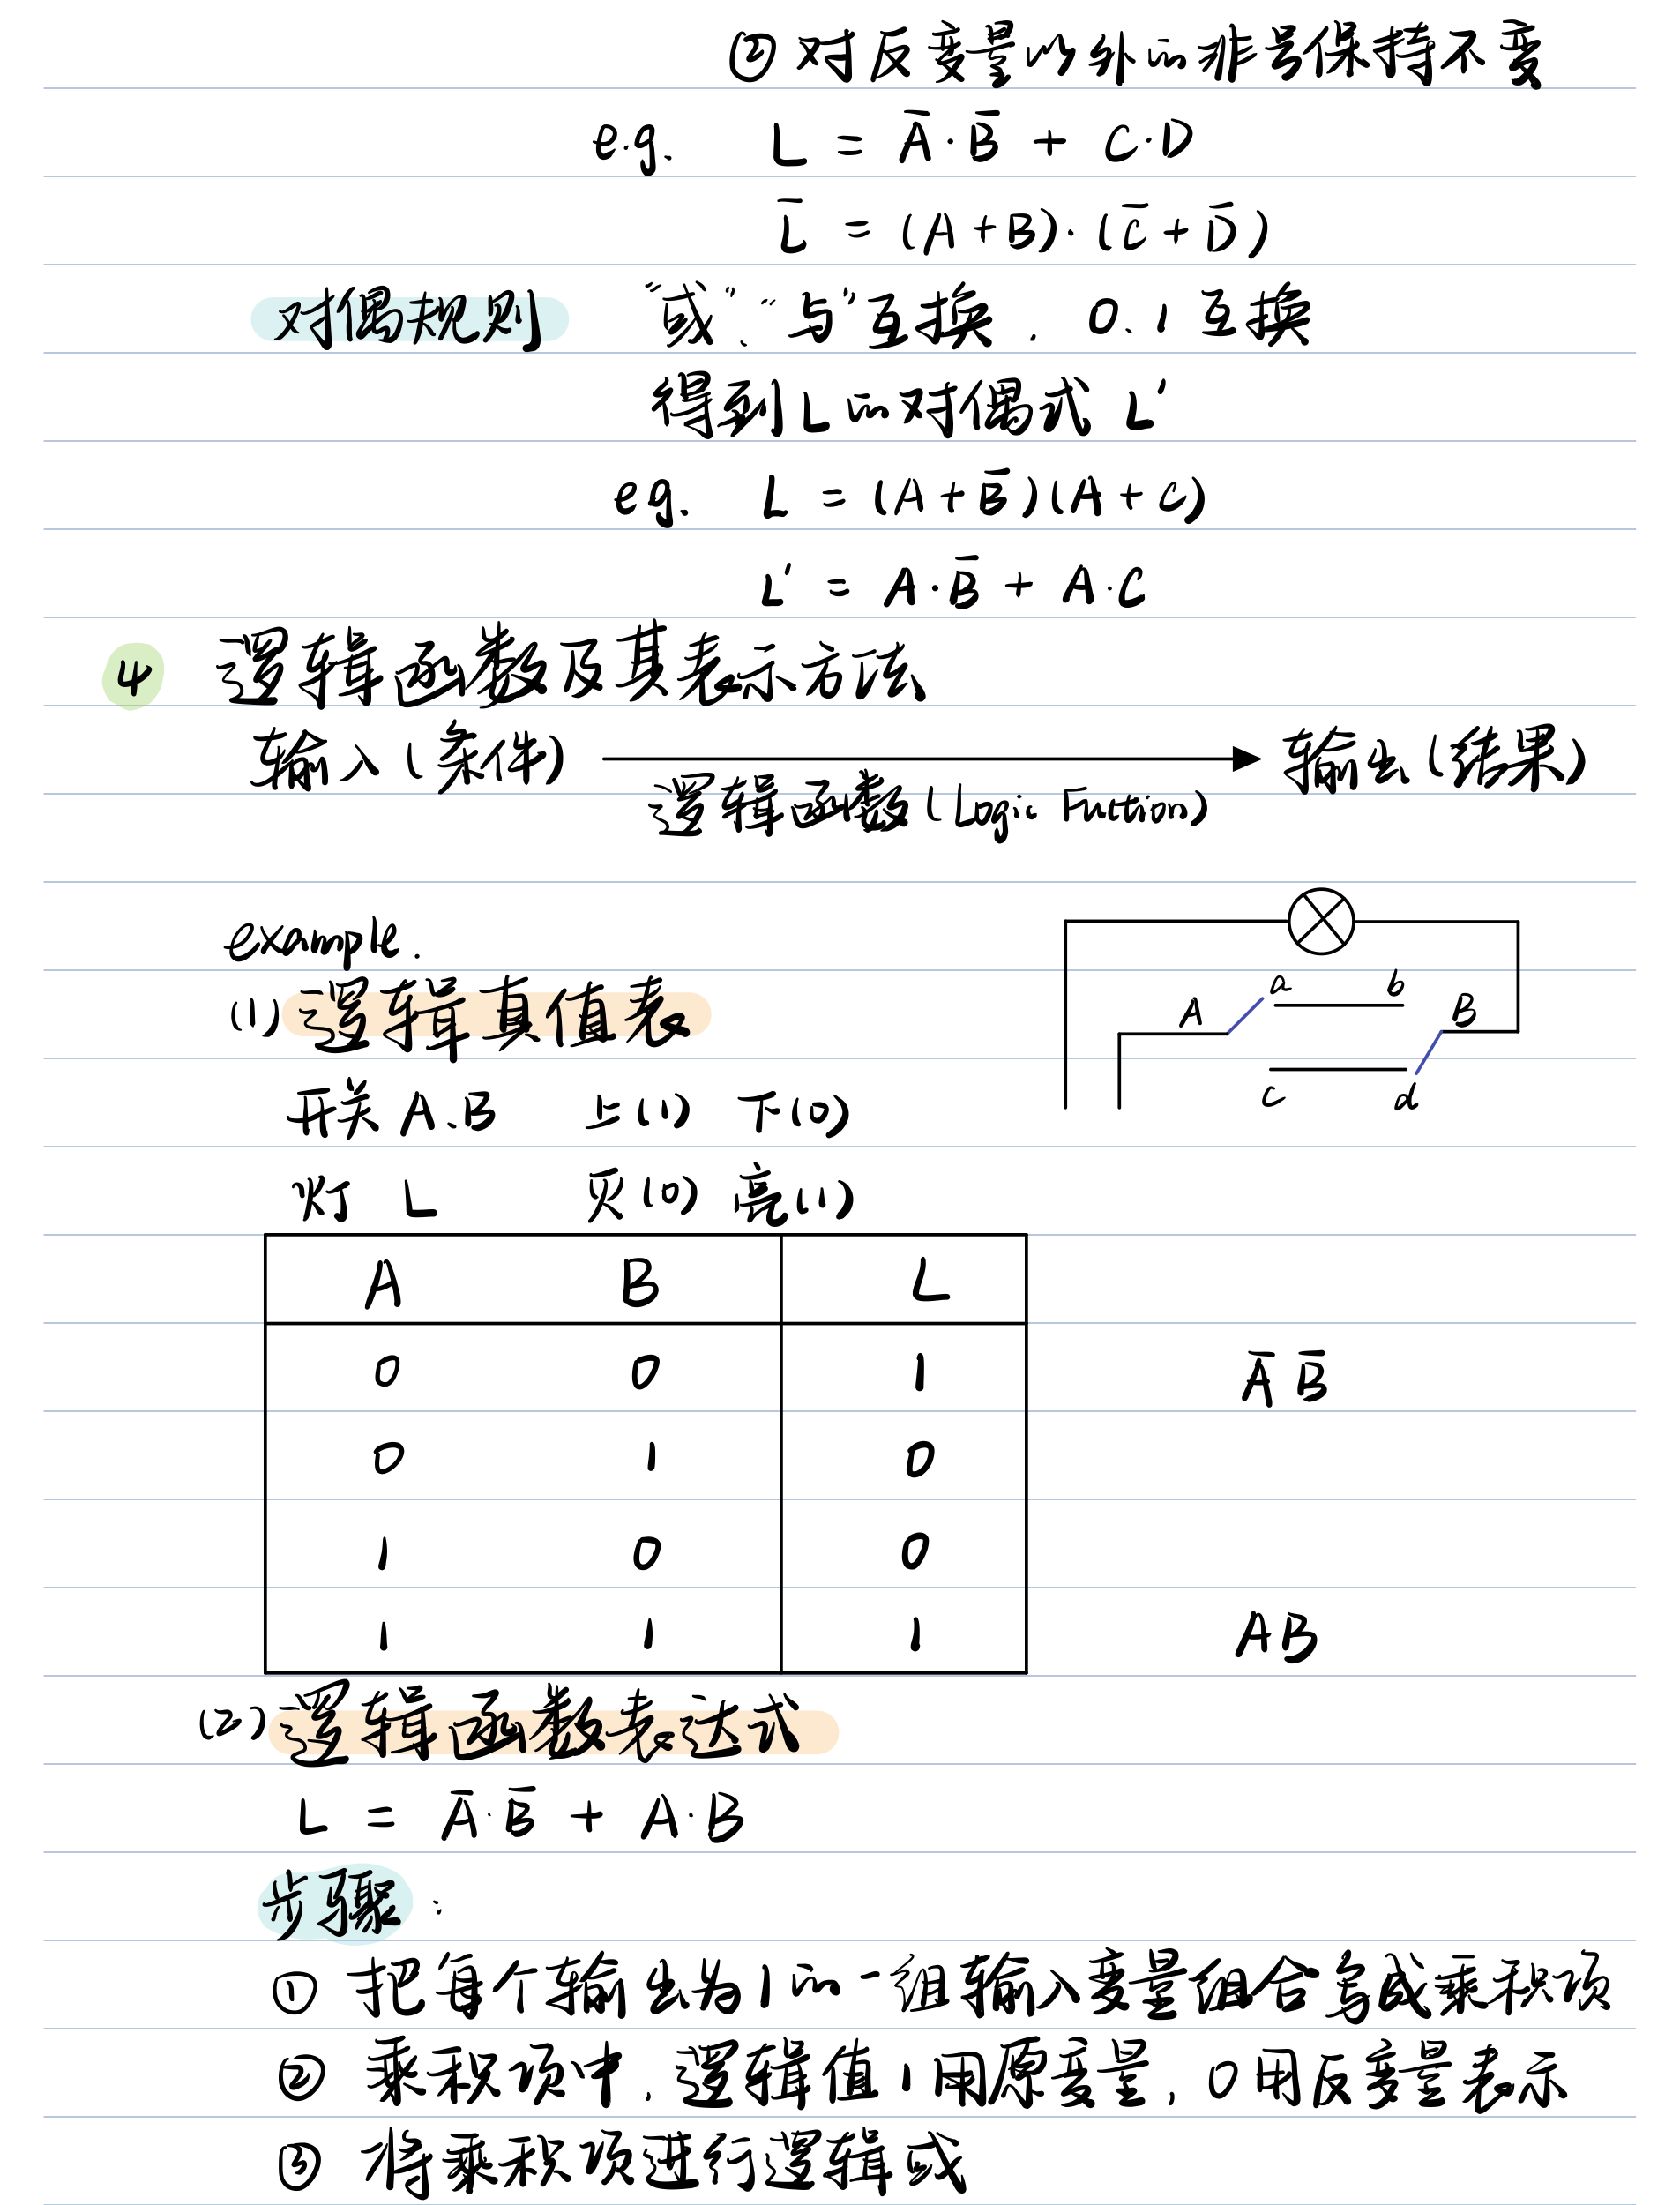 ② 对反变量以外的非号保持不变
e.g. L = A̅·B̅ + C·D
L̅ = (A+B)·(C̅+D̅)
对偶规则 "或"、"与"互换, 0、1互换
得到L的对偶式 L'
eg. L = (A+B̅)(A+C)
L' = A·B̅ + A·C
4 逻辑函数及其表示方法
输入(条件) 输出(结果)
逻辑函数(Logic Function)
example.
(1) 逻辑真值表
a b
A B
c d
开关 A、B 上(1) 下(0)
灯 L 灭(0) 亮(1)
A B L
0 0 1 A̅ B̅
0 1 0
1 0 0
1 1 1 AB
(2) 逻辑函数表达式
L = A̅·B̅ + A·B
步骤:
① 把每个输出为1的一组输入变量组合写成乘积项
② 乘积项中, 逻辑值1用原变量, 0用反变量表示
③ 将乘积项进行逻辑或